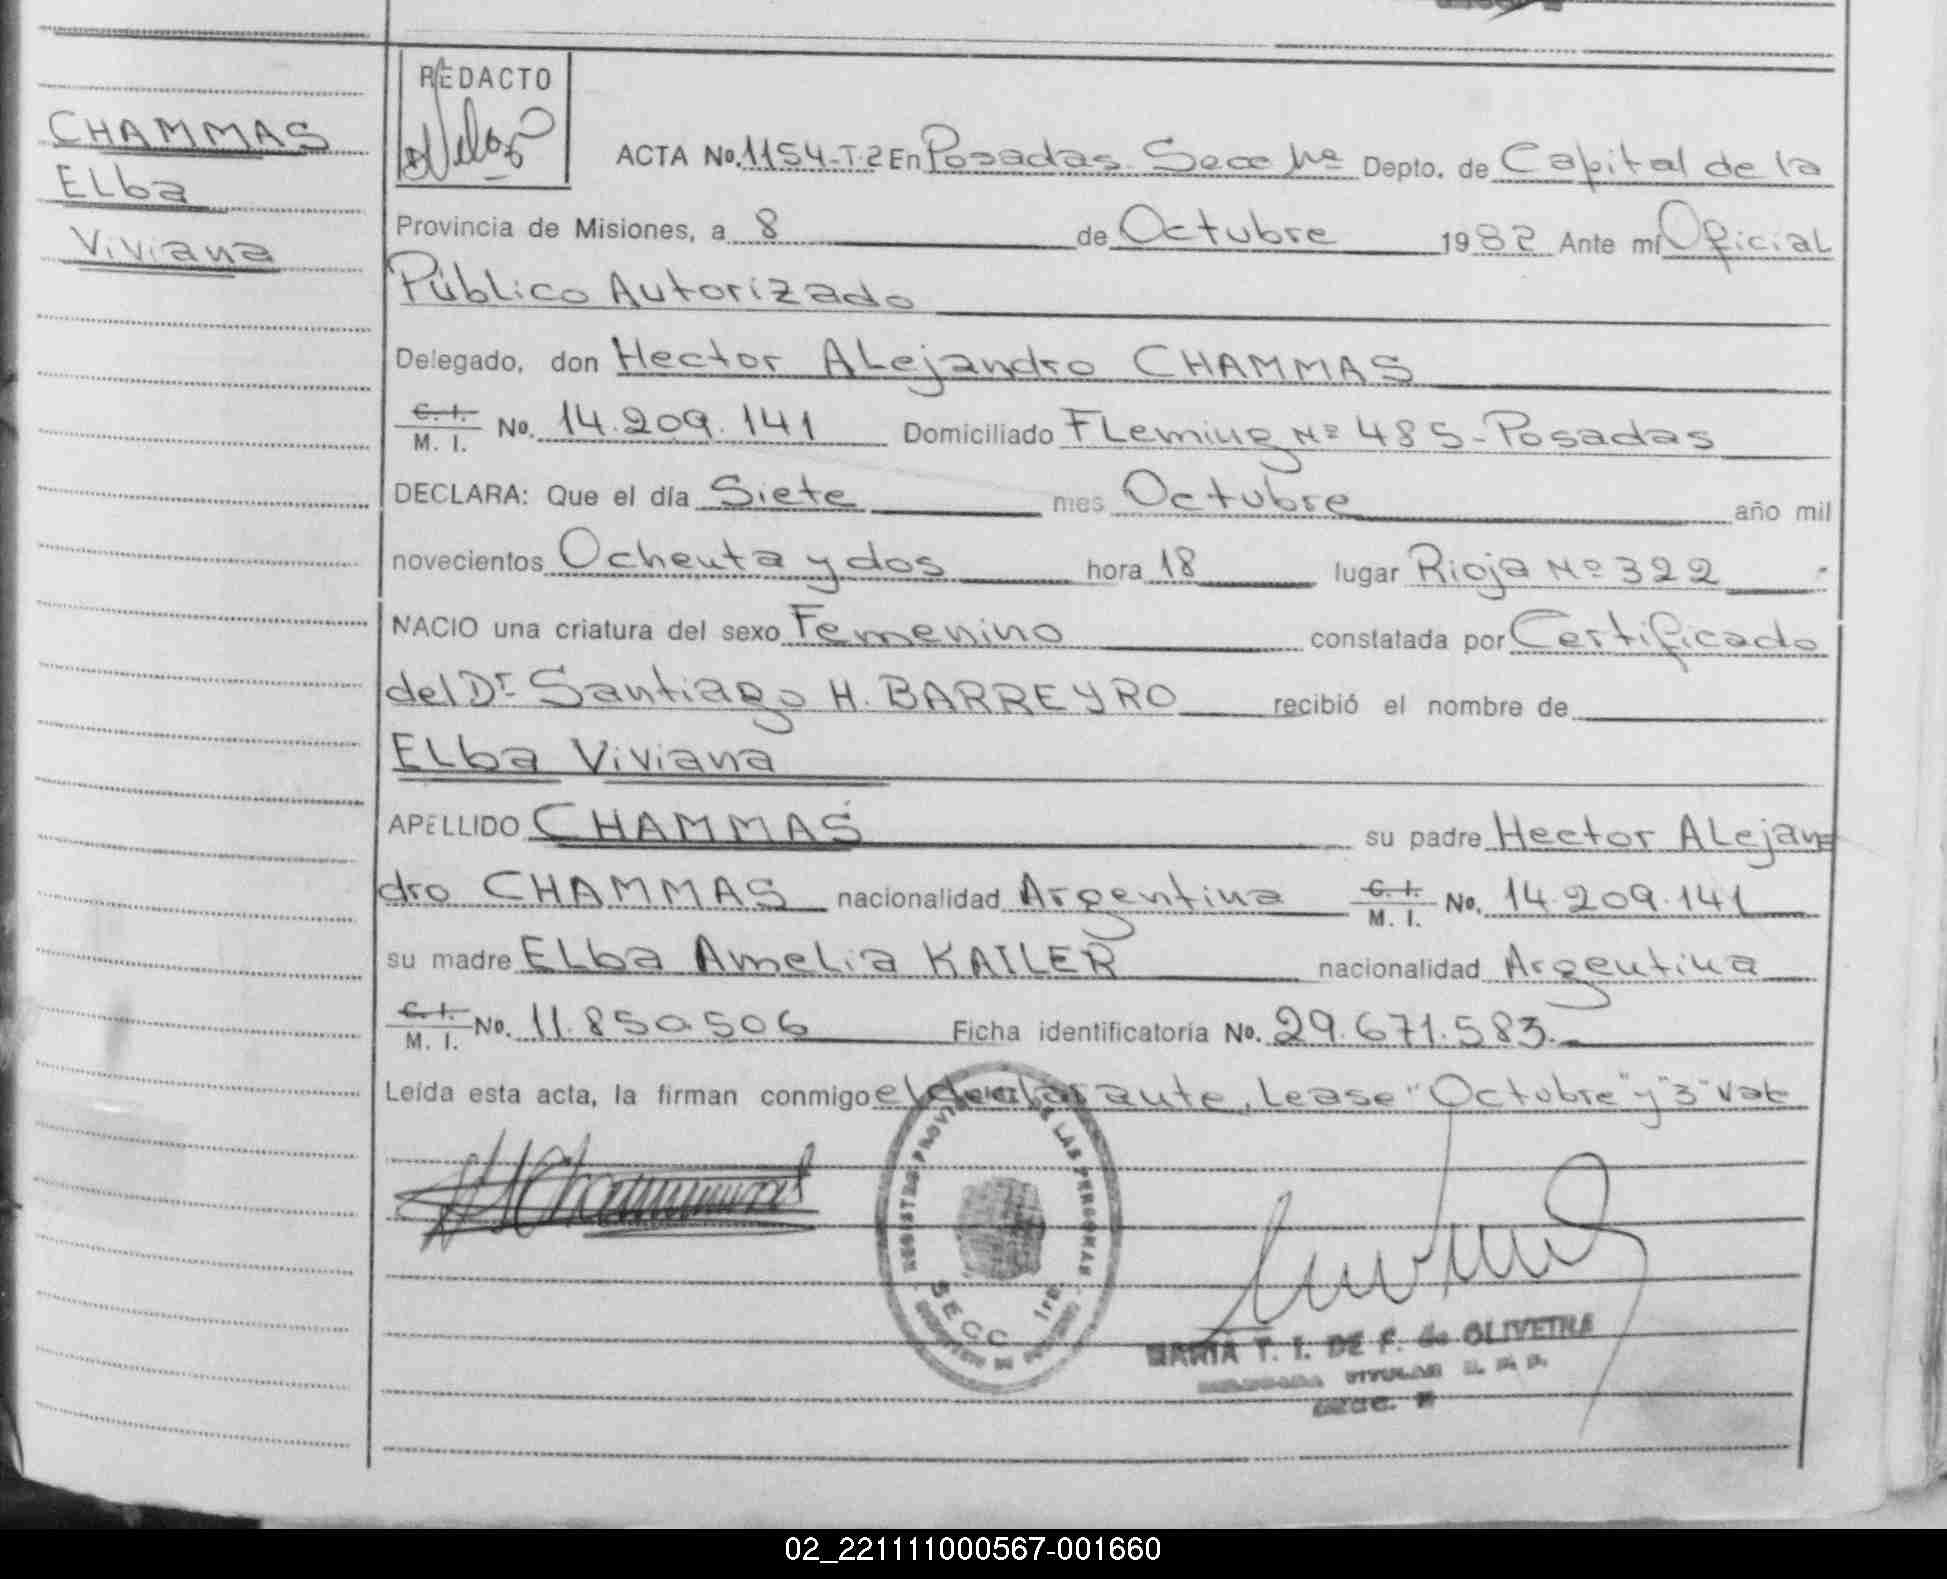 CHAMMAS
Elba
Viviana
REDACTO
ACTA No. 1154-T-2 En Posadas Secc 1ra Depto. de Capital de la
Provincia de Misiones, a 8 de Octubre 1982 Ante mí Oficial
Público Autorizado
Delegado, don Hector Alejandro CHAMMAS
C. I. / M. I. No. 14.209.141 Domiciliado Fleming Nº 485-Posadas
DECLARA: Que el día Siete mes Octubre año mil
novecientos Ochenta y dos hora 18 lugar Rioja Nº 322
NACIO una criatura del sexo Femenino constatada por Certificado
del Dr Santiago H. BARREYRO recibió el nombre de
Elba Viviana
APELLIDO CHAMMAS su padre Hector Alejan=
dro CHAMMAS nacionalidad Argentina C. I. / M. I. No. 14.209.141
su madre Elba Amelia KAILER nacionalidad Argentina
C. I. / M. I. No. 11.850.506 Ficha identificatoria No. 29.671.583.
Leída esta acta, la firman conmigo el declarante, Lease "Octubre" y "3" Vale
REGISTRO PROVINCIAL DE LAS PERSONAS
SECC 1ra.
MARIA T. I. DE F. de OLIVEIRA
TITULAR
02_221111000567-001660